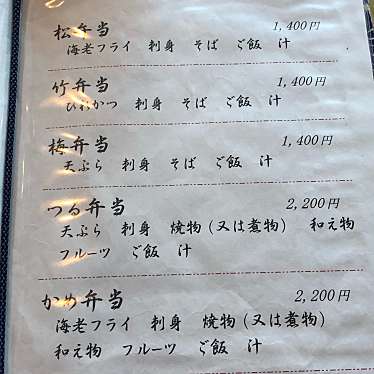 松弁当 1,400円
海老フライ 刺身 そば ご飯 汁
竹弁当 1,400円
ひれかつ 刺身 そば ご飯 汁
梅弁当 1,400円
天ぷら 刺身 そば ご飯 汁
つる弁当 2,200円
天ぷら 刺身 焼物(又は煮物) 和え物
フルーツ ご飯 汁
かめ弁当 2,200円
海老フライ 刺身 焼物(又は煮物)
和え物 フルーツ ご飯 汁